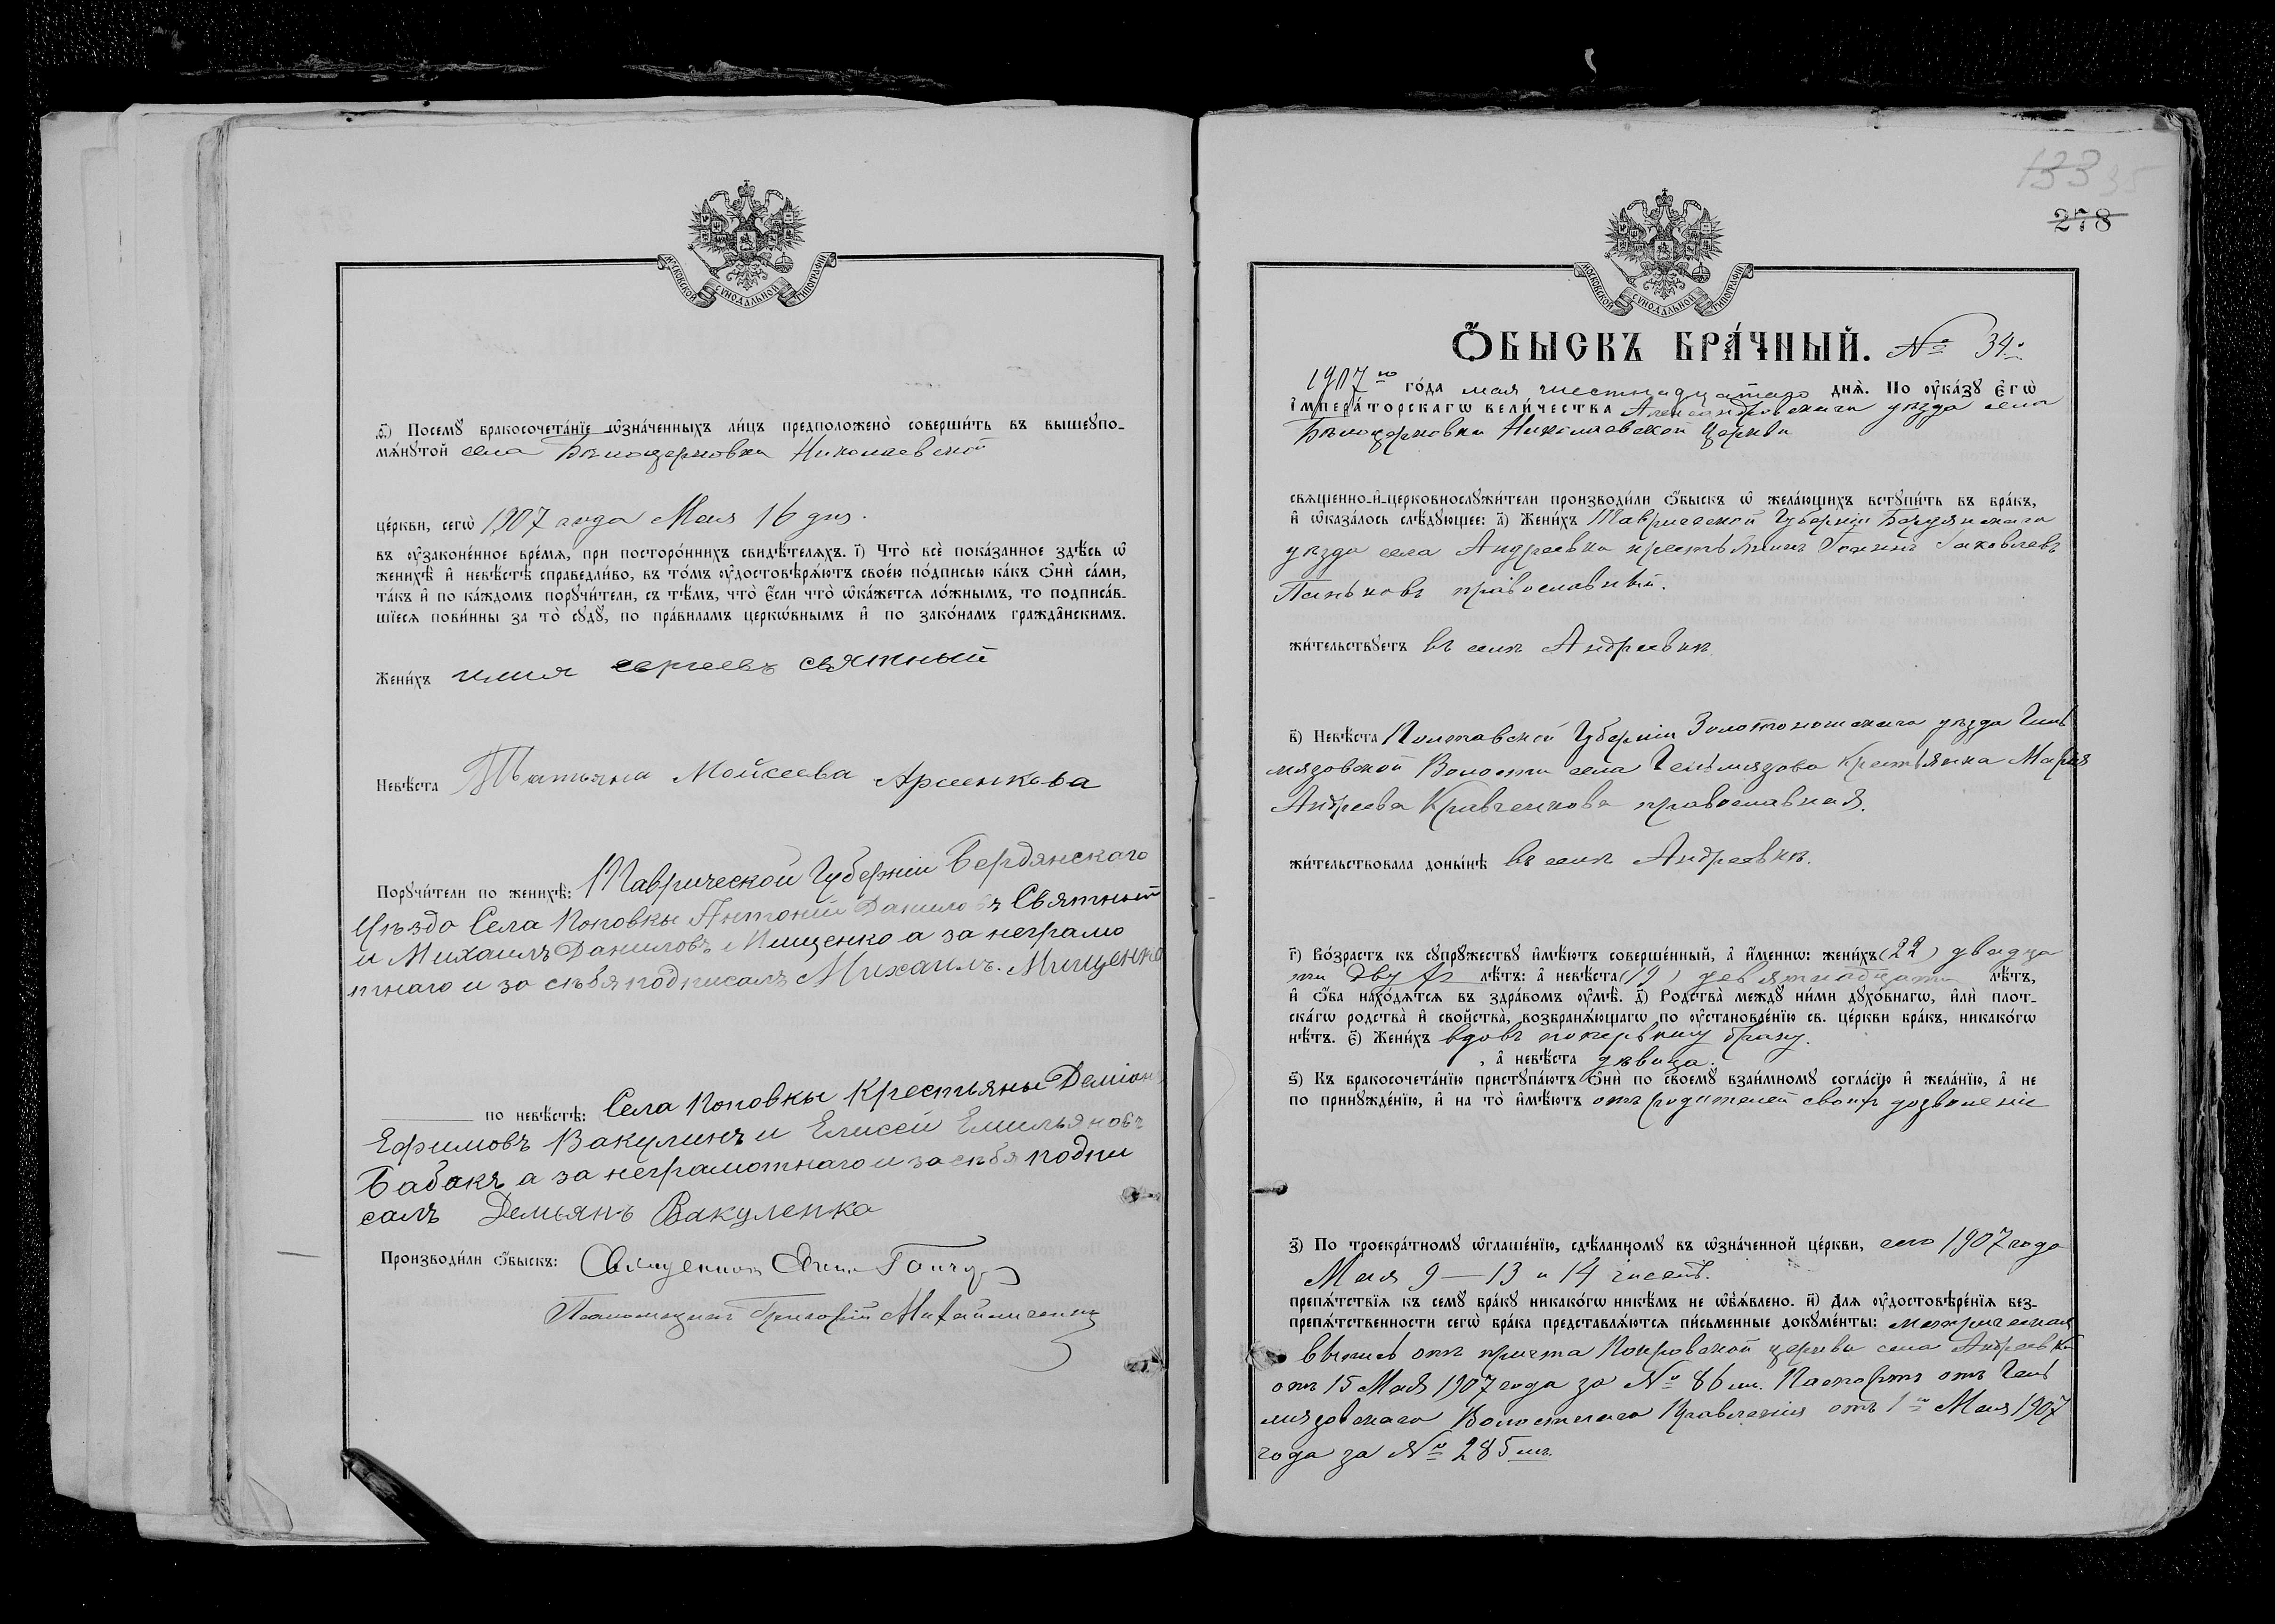 МОСКОВСКОЙ СѴНОДАЛЬНОЙ ТИПОГРАФІИ
Посемꙋ̀ бракосочета́нїе ѡ҆зна́ченныхъ ли́цъ предположено̀ соверши́ть въ вышеꙋпо-
мѧ́нꙋтой села Бѣлоцерковки Николаевской
це́ркви, сегѡ̀ 1907 года Мая 16 дня.
въ ᲂу҆зако́ненное вре́мѧ, при посторо́ннихъ свидѣ́телѧхъ. і҃) Что̀ всѐ пока́занное здѣ́сь ѡ҆
женихѣ̀ и҆ невѣ́стѣ справедли́во, въ то́мъ ᲂу҆достовѣрѧ́ютъ свое́ю по́дписью ка́къ ѻ҆нѝ са́ми,
та́къ и҆ по ка́ждомъ порꙋчи́тели, съ тѣ́мъ, что̀ є҆́сли что̀ ѡ҆ка́жетсѧ ло́жнымъ, то подписа́в-
шїесѧ пови́нны за то̀ сꙋдꙋ̀, по пра́виламъ церко́внымъ и҆ по зако́намъ гражда́нскимъ.
Жени́хъ илия сергеевъ святный
Невѣ́ста Татьяна Мойсеева Арсенкова
Порꙋчи́тели по женихѣ̀: Таврической Губерніи Бердянскаго
Уѣзда Села Поповки Антоній Даниловъ Святный
и Михаилъ Даниловъ Мищенко а за неграмо
тнаго и за себя подписалъ Михаилъ. Мищенко
по невѣ́стѣ: Села Поповки Крестьяны Деміон
Ефимовъ Вакулинъ и Елисей Емильяновъ
Бабакъ а за неграмотнаго и за себя подпи
салъ Демьянъ Вакуленко
Производи́ли ѻ҆́быскъ: Священник
Григорій Михайличенко
133 35
278
МОСКОВСКОЙ СѴНОДАЛЬНОЙ ТИПОГРАФІИ
Ѻ҆́БЫСКЪ БРА́ЧНЫЙ. № 34.
1907го го́да мая шестнадцатаго днѧ̀. По ᲂу҆ка́зꙋ Є҆гѡ̀
І҆мпера́торскагѡ вели́чества Александровскаго уѣзда села
Бѣлоцерковки Николаевской Церкви
свѧще́нно-и҆-церковнослꙋжи́тели производи́ли ѻ҆́быскъ ѡ҆ жела́ющихъ встꙋпи́ть въ бра́къ,
и҆ ѡ҆каза́лось слѣ́дꙋющее: а҃) Жени́хъ Таврической Губерніи Бердянскаго
уѣзда села Андреевки крестьянинъ Іаковлевъ
Паньковъ православный.
жи́тельствꙋетъ въ селѣ Андреевкѣ.
в҃) Невѣ́ста Полтавской Губерніи Золотоношскаго уѣзда Гель
мязовской Волости села Гельмязова крестьянка Марія
Андреева Кравченкова православная.
жи́тельствовала доны́нѣ въ селѣ Андреевкѣ.
г҃) Во́зрастъ къ сꙋпрꙋ́жествꙋ и҆мѣ́ютъ соверше́нный, а҆ и҆́меннѡ: жени́хъ (22) двадца
ти двухъ лѣ́тъ: а҆ невѣ́ста (19) девятнадцати лѣ́тъ,
и҆ ѻ҆́ба нахо́дѧтсѧ въ здра́вомъ ᲂу҆мѣ̀. д҃) Родства̀ междꙋ̀ ни́ми дꙋхо́внагѡ, и҆лѝ плот-
ска́гѡ родства̀ и҆ сво́йства, возбранѧ́ющагѡ по ᲂу҆становле́нїю св. це́ркви бра́къ, никако́гѡ
нѣ́тъ. є҃) Жени́хъ вдовъ поперьвому браку.
, а҆ невѣ́ста дѣвица.
ѕ҃) Къ бракосочета́нїю пристꙋпа́ютъ ѻ҆нѝ по своемꙋ̀ взаи́мномꙋ согла́сїю и҆ жела́нїю, а҆ не
по принꙋжде́нїю, и҆ на то̀ и҆мѣ́ютъ отъ родителей своихъ дозволеніе
з҃) По троекра́тномꙋ ѡ҆глаше́нїю, сдѣ́ланномꙋ въ ѡ҆зна́ченной це́ркви, сего 1907 года
Мая 9 — 13 и 14 чиселъ.
препѧ́тствїѧ къ семꙋ̀ бра́кꙋ никако́гѡ ники́мъ не ѡ҆б̾ѧ́влено. и҃) Длѧ ᲂу҆достовѣре́нїѧ без-
препѧ́тственности сегѡ̀ бра́ка представлѧ́ютсѧ пи́сьменные докꙋме́нты: метрическая
выпись отъ причта Покровской церкви села Андреевки
отъ 15 Мая 1907 года за № 86мъ. Паспортъ отъ Гель
мязовскаго Волостнаго Правленія отъ 1го Мая 1907
года за № 285мъ.